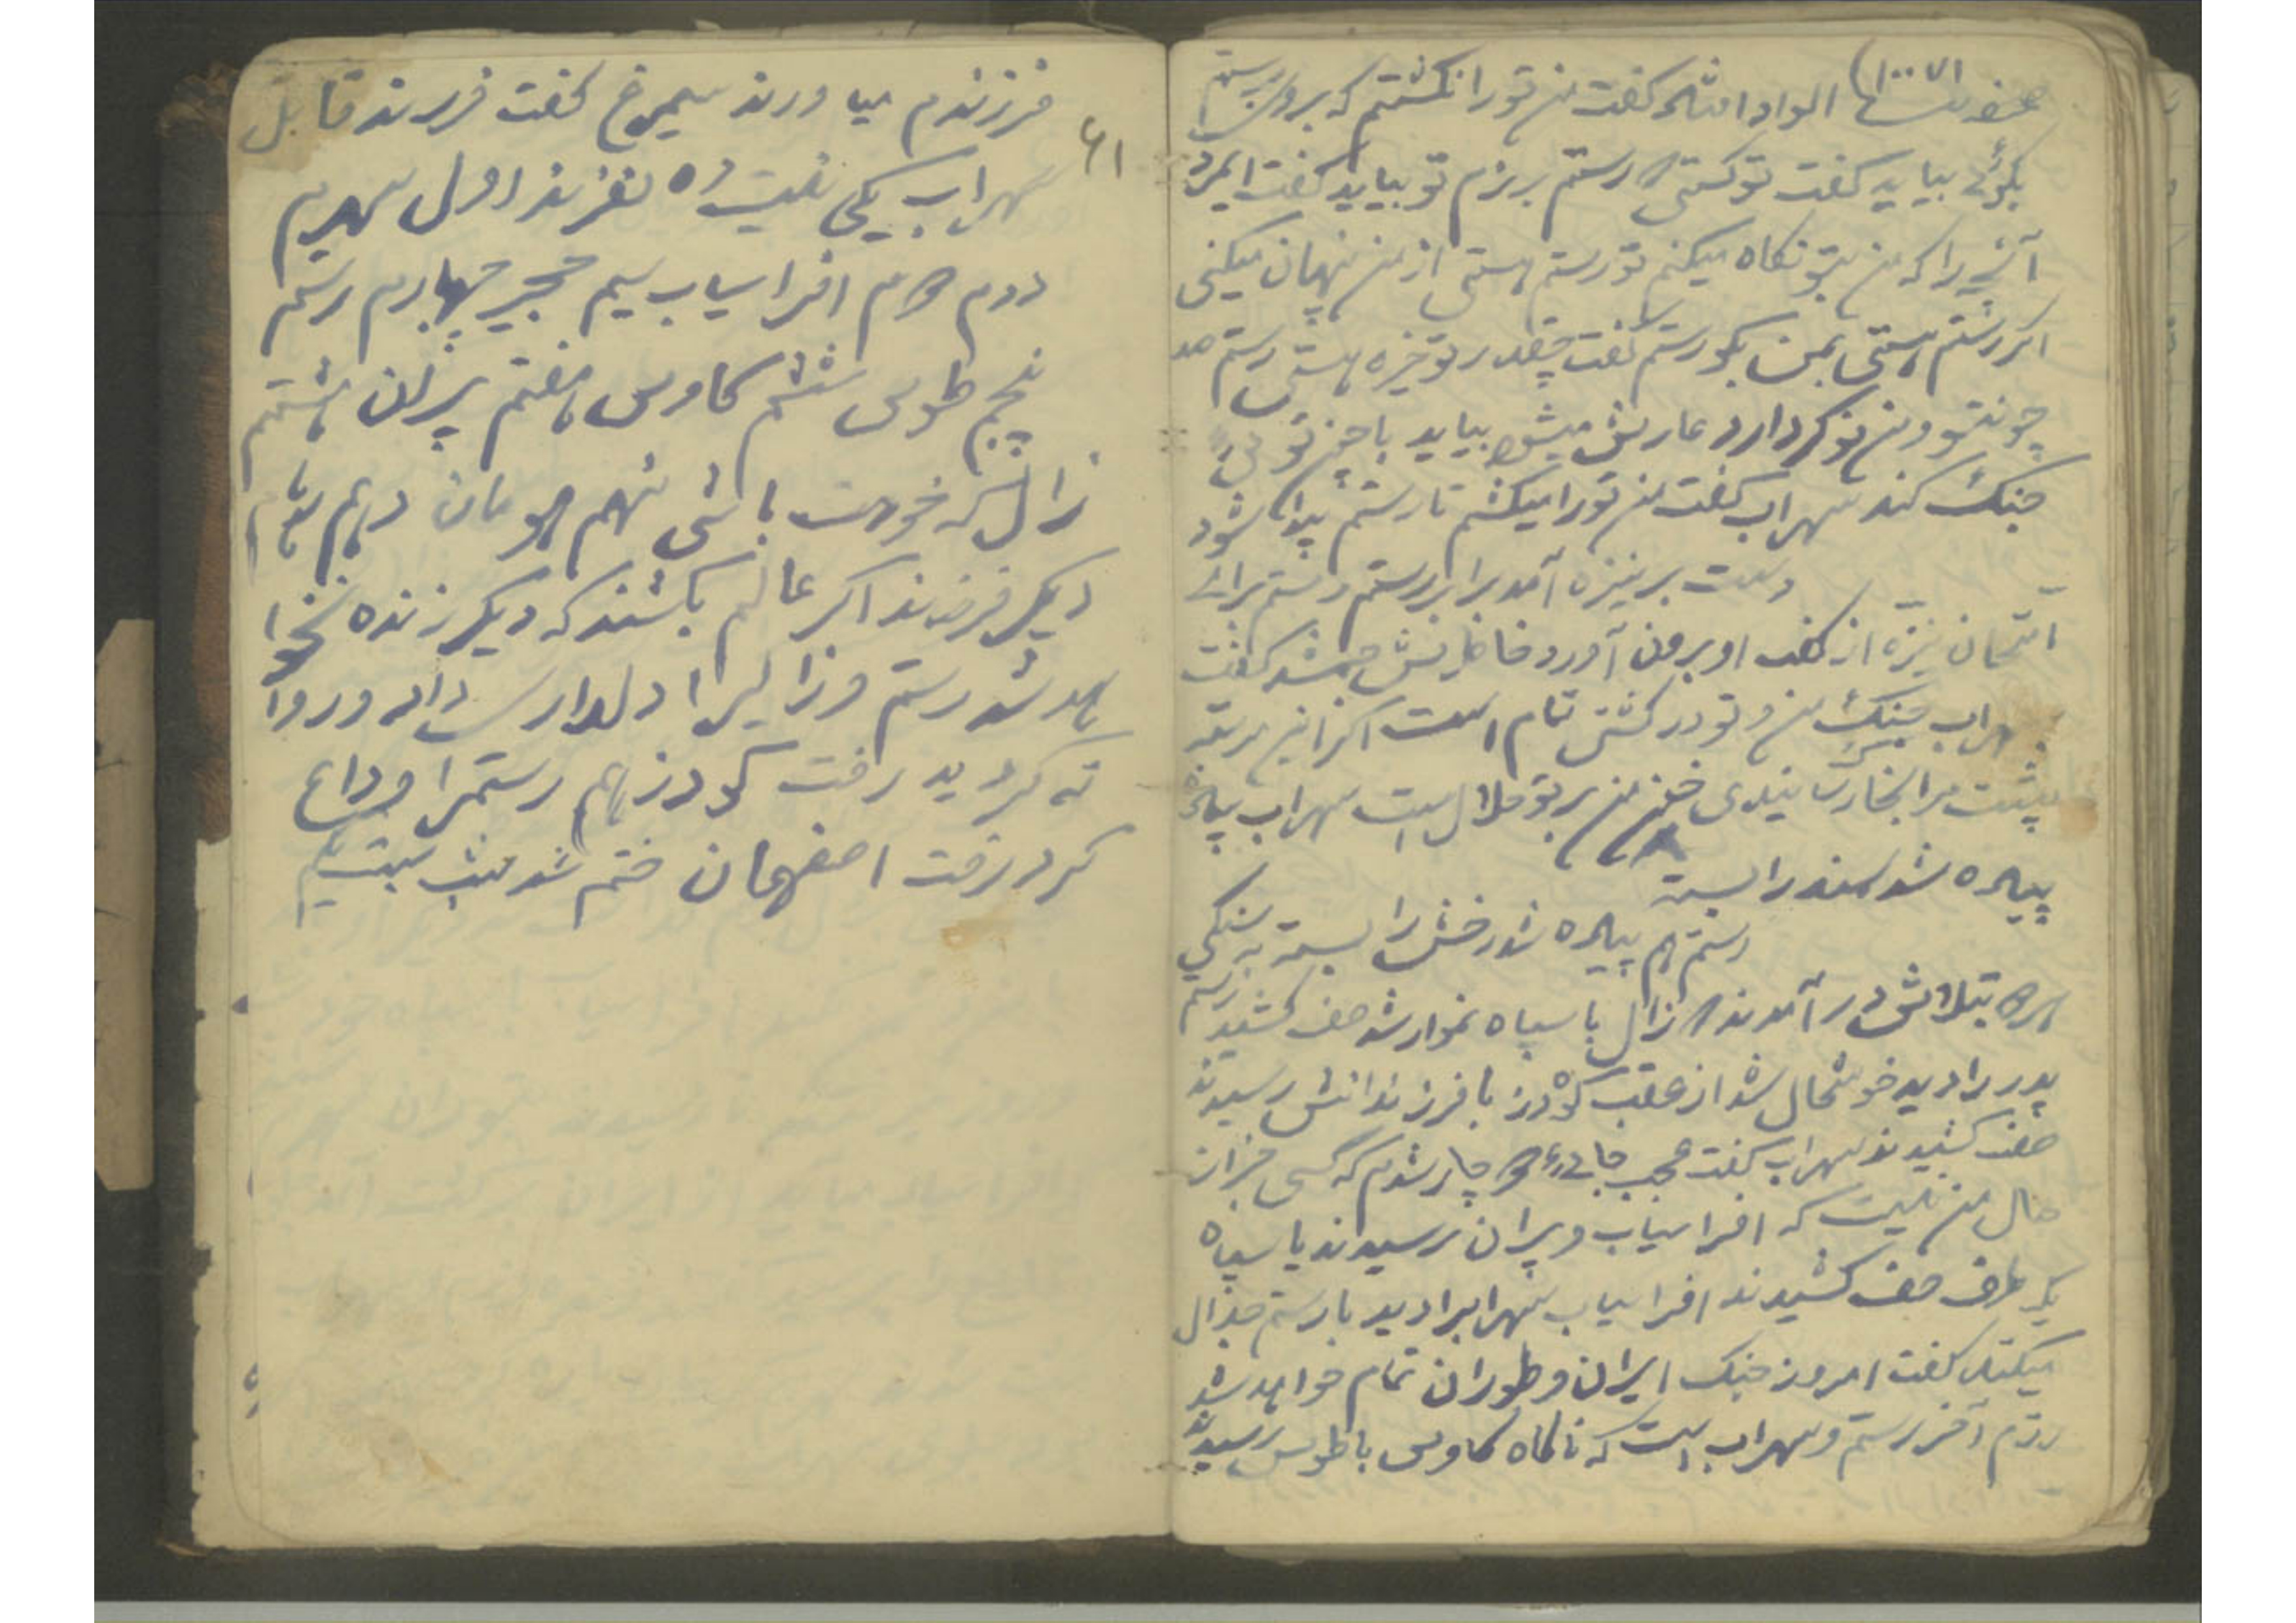 الوداد انشاله گفت من تو را نکشتم که بروی برستم
بگوئی بیاید گفت تو کستی که رستم برزم تو بیاید گفت ایمرد
را که من بتو نگاه میکنم تو رستم هستی از من پنهان میکنی
اگر رستم هستی بمن بگو رستم گفت چقدر تو خیره هستی رستم صد
چونتو و من نوکر دارد عارش میشود بیاید با
جنگ کند سهراب گفت من تو را میکشم تا رستم پیدا شود
دست بر نیزه آمد برابر رستم رستم برای
امتحان نیزه از کف او برون آورد گفت
سهراب جنگ من و تو در کشتی تمام است اگر این مرتبه
پشت مرا بخاک رسانیدی خون من بر تو حلال است سهراب پیاده
پیاده شد سمند را بسته
رستم هم پیاده شد رخش را بسته به سنگی
بتلاش در آمدند که زال با سپاه نموار شد صف کشید رستم
پدر را دید خوشحال شد از عقب گودرز با فرزندانش رسیدند
صف کشیدند سهراب گفت عجب جائی دچار شدم که کسی خبر از
حال من نیست که افراسیاب و پیران رسیدند با سپاه
یک طرف صف کشیدند افراسیاب سهرابرا دید با رستم جدال
میکند گفت امروز جنگ ایران و طوران تمام خواهد شد
رزم آخر رستم و سهراب است که ناگاه کاوس با طوس رسیدند
۶۱
فرزندم میاورند سیمرغ گفت فرزند قابل
سهراب یکی نیست ده نفرند اول سهریم
دوم افراسیاب سیم حجیر چهارم رستم
پنجم طوس ششم کاوس هفتم پیران هشتم
زال که خودت باشی نهم هومان دهم
دیگر فرزند اگر عالم بکشند که دیگر زنده نخوا
هد شد رستم و زالیرا دلدارس داد و روا
نه گردید رفت گودرز هم رستمرا وداع
کرد رفت اصفهان ختم شد شب بیست یکم